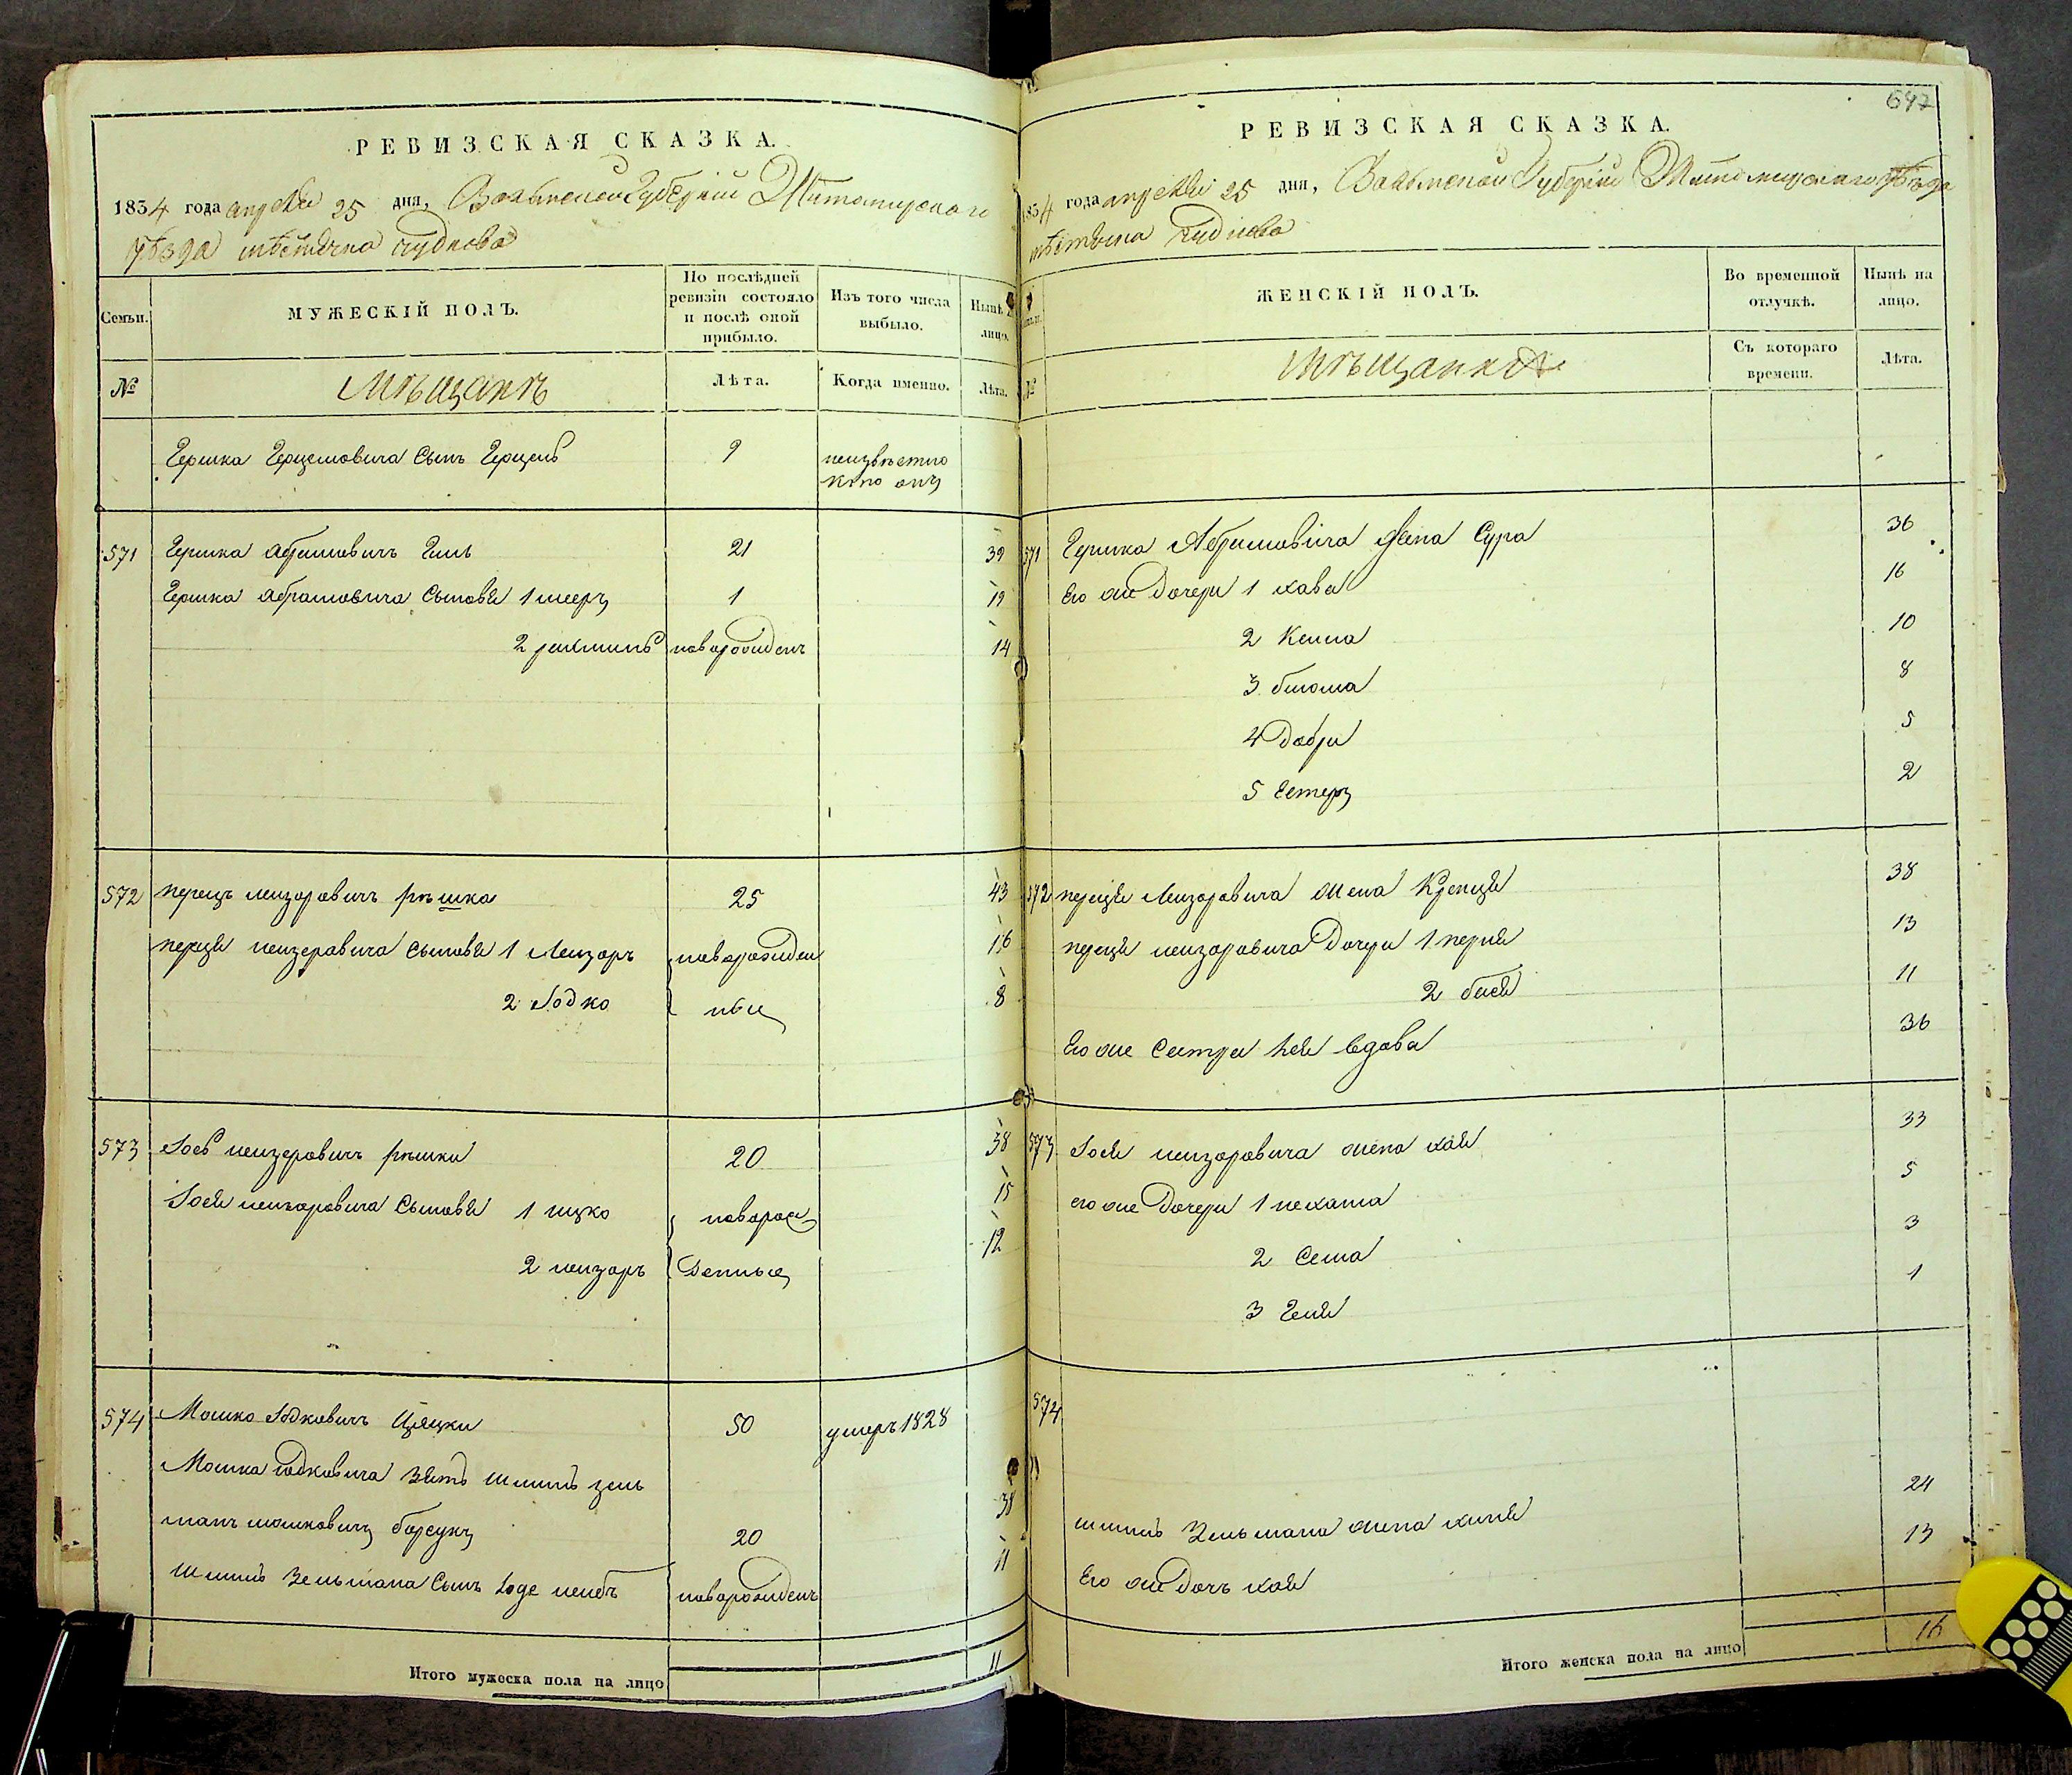 РЕВИЗСКАЯ СКАЗКА.
1834 года апреля 25 дня, Волынской Губернии Житомирскаго
уѣзда мѣстечка Чуднова
Семьи.
МУЖЕСКІЙ ПОЛЪ.
По послѣдней ревизіи состояло и послѣ оной прибыло.
Изъ того числа выбыло.
Нынѣ лицо.
№
Мѣщанъ
Лѣта.
Когда именно.
Лѣта.
Гершка Герцеловича Сынъ Герцель 9 неизвѣстно
кто онъ
571 Гершка Абрамовичъ 21 39
Гершка Абрамовича Сыновя 1 мееръ 1 19
2 новорожденъ 14
572 перецъ Леизоровичъ 25 43
перця леизеровича Сыновя 1 Леизоръ новорожден 16
2 Іодко ные 8
573 Іось леизеровичъ 20 38
Іося леизоровича Сыновя 1 ицко новорож 15
2 леизоръ Денные 12
574 Мошко Іодковичъ 50 умеръ 1828
Мошка Іодковича Зять Шмиль зель
манъ мошковичъ борсукъ 20 38
Шмиль Зельмана Сынъ леибъ новорожденъ 11
Итого мужеска пола на лицо 11
647
РЕВИЗСКАЯ СКАЗКА.
1834 года апреля 25 дня, Волынской Губерніи Житомирскаго уѣзда
мѣстечка Чуднова
ЖЕНСКІЙ ПОЛЪ.
Во временной отлучкѣ.
Нынѣ на лицо.
№
Мѣщанка
Съ котораго времени.
Лѣта.
571 Гершка Абрамовича жена Сура 36
Его же Дочери 1 хава 16
2 10
3 блюма 8
4 Добри 5
5 Естеръ 2
572 перця Леизоровича жена Креиця 38
перця леизоровича Дочери 1 перля 13
2 бася 11
Его же Сестра вдова 36
573 Іося леизоровича жена хая 33
его же Дочери 1 нехама 5
2 Сема 3
3 Геня 1
574
Шмиль Зельмана жена 24
Его же Дочъ хая 13
Итого женска пола на лицо 16